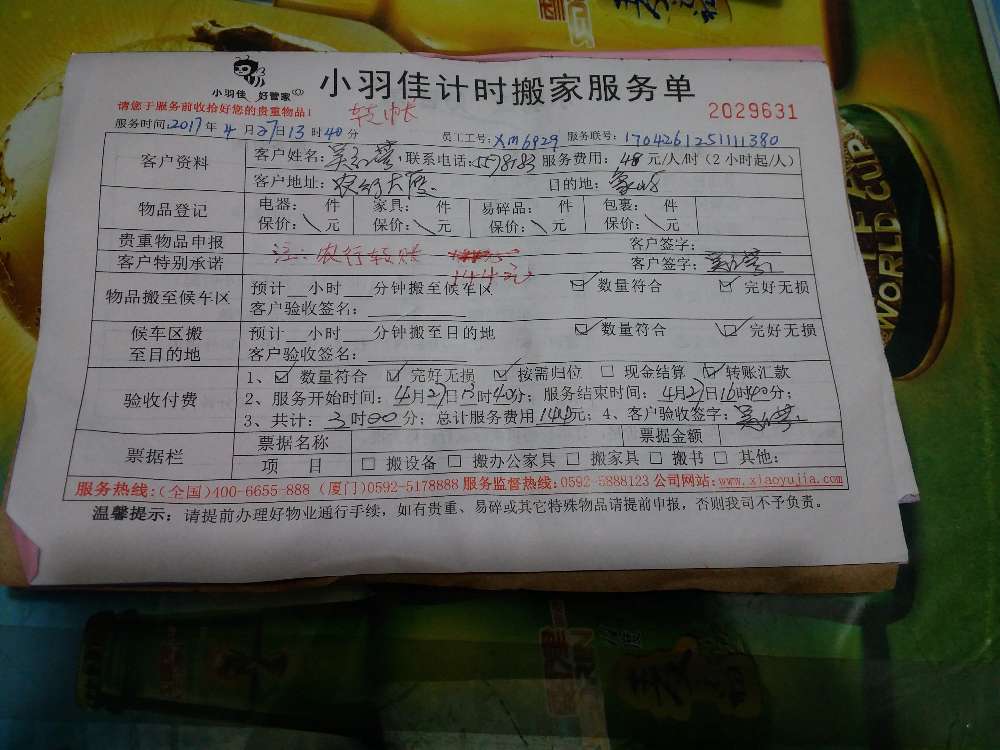 小羽佳 好管家
小羽佳计时搬家服务单
请您于服务前收拾好您的贵重物品!
转帐
2029631
服务时间:2017年4月27日13时40分 员工工号:XM6929 服务联号:170426125111380
客户资料
客户姓名: 联系电话:5578783 服务费用:48元/人/时(2小时起/人)
客户地址:农行大厦 目的地:象屿
物品登记
电器: 件 家具: 件 易碎品: 件 包裹: 件
保价: 元 保价: 元 保价: 元 保价: 元
贵重物品申报 客户签字:
客户特别承诺 注:农行转账 144元 客户签字:
物品搬至候车区
预计 小时 分钟搬至候车区 数量符合 完好无损
客户验收签名:
候车区搬至目的地
预计 小时 分钟搬至目的地 数量符合 完好无损
客户验收签名:
验收付费
1、数量符合 完好无损 按需归位 现金结算 转账汇款
2、服务开始时间:4月27日13时40分;服务结束时间:4月27日16时40分;
3、共计:3时00分;总计服务费用144元;4、客户验收签字:
票据栏
票据名称 票据金额
项 目 搬设备 搬办公家具 搬家具 搬书 其他:
服务热线:(全国)400-6655-888 (厦门)0592-5178888 服务监督热线:0592-5888123 公司网站:www.xiaoyujia.com
温馨提示:请提前办理好物业通行手续,如有贵重、易碎或其它特殊物品请提前申报,否则我司不予负责。
WORLD CUP